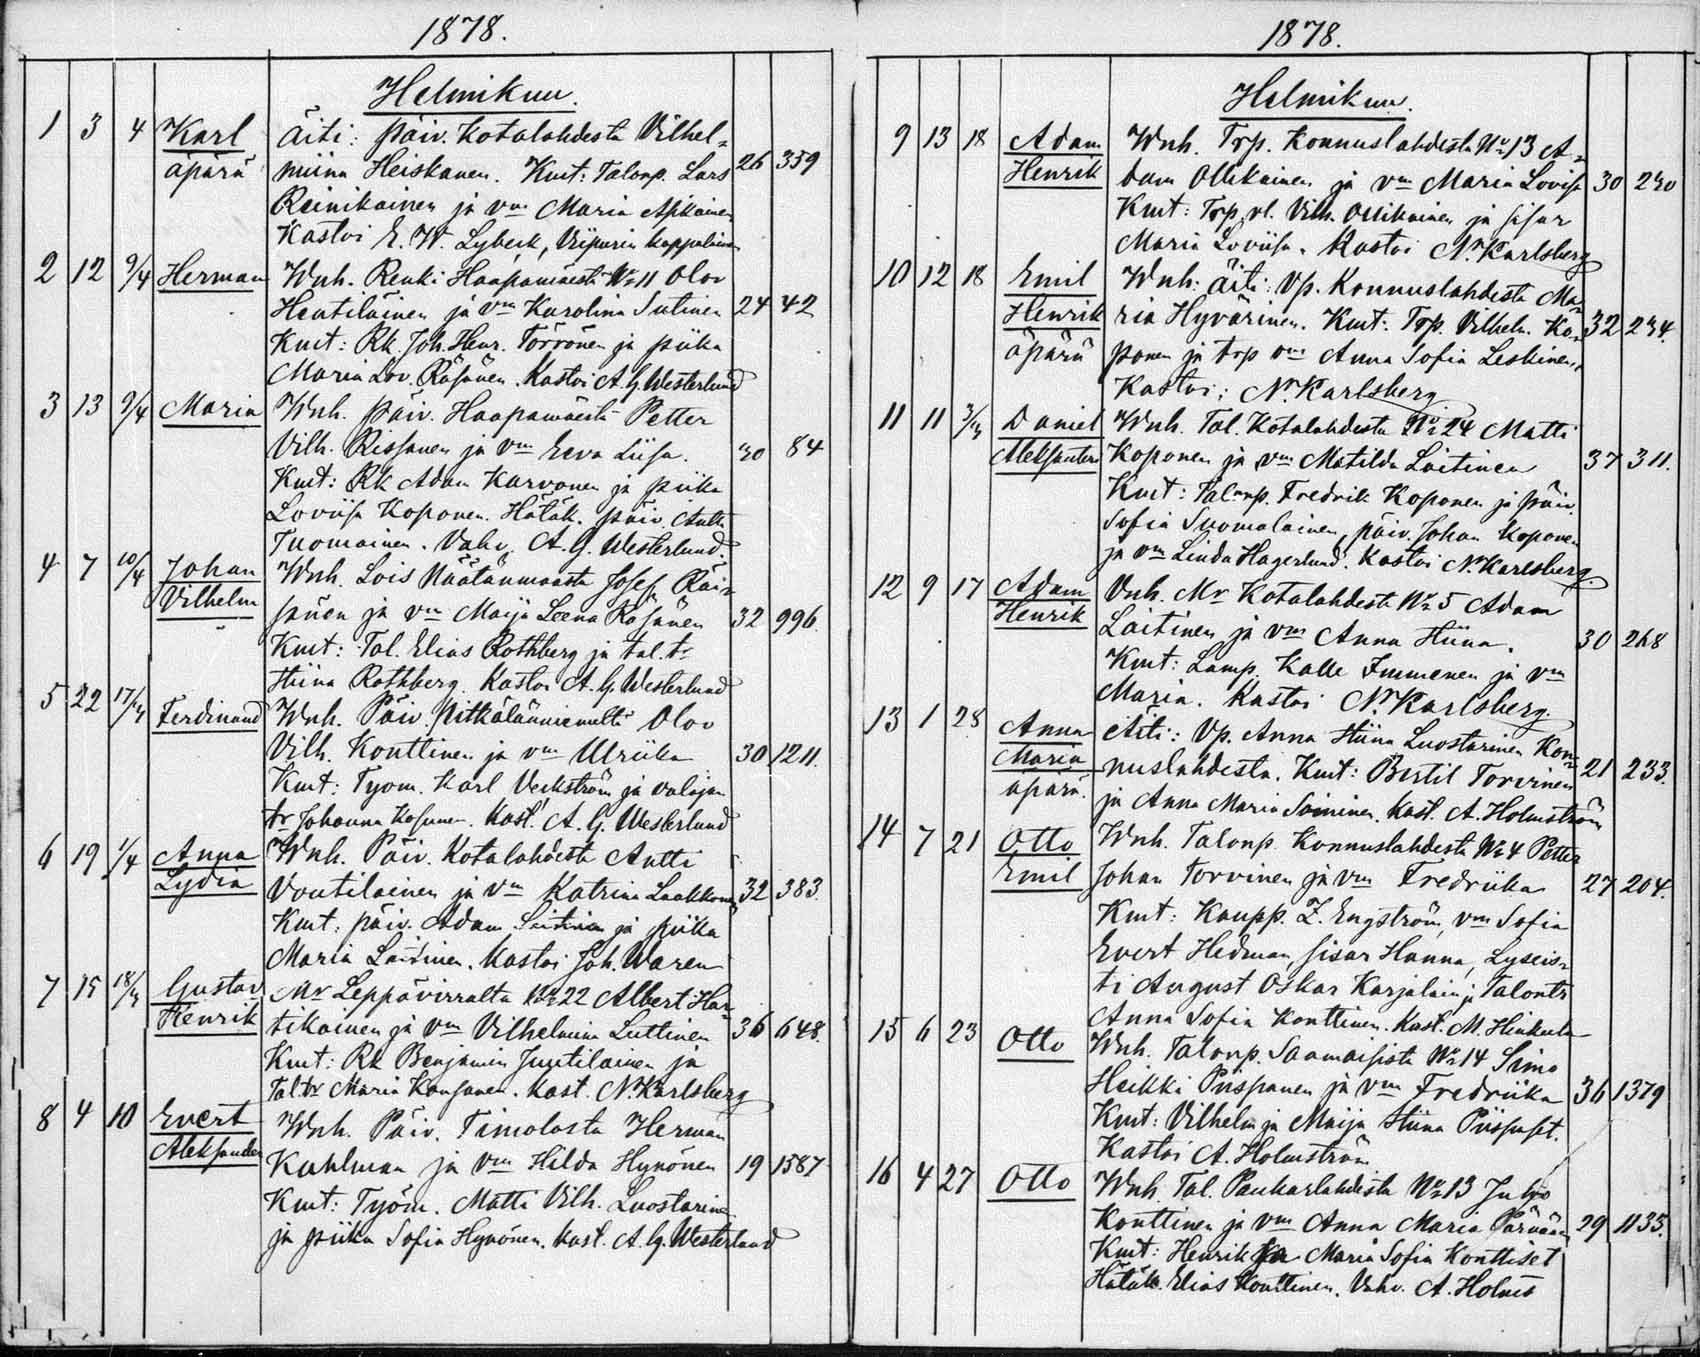 1878.
Helmikuu.
1 3 4 Karl Äiti: päiv. Kotalahdesta Vilhel-
äpärä miina Heiskanen. Kmt: Talonp. Lars 26 359
Reinikainen ja vm Maria Apkainen
Kastoi E. W. Lybeck, Viipurin kappalainen
2 12 9/4 Herman Wnh. Renki Haapamäestä No 11 Olov
Hentiläinen ja vm Karolina Sutinen 24 42
Kmt: Rk. Joh. Henr. Törrönen ja piika
Maria Lov. Räsänen. Kastoi A. G. Westerlund
3 13 9/4 Maria Wnh. päiv. Haapamäestä Petter
Vilh. Rissanen ja vm Eeva Liisa. 30 84
Kmt: Rk Adam Karvonen ja piika
Loviisa Koponen. Hätäk. päiv. Antti
Tuomainen. Vahv. A. G. Westerlund.
4 7 10/4 Johan Wnh. Lois Näätänmaasta Josef Räi-
Vilhelm sänen ja vm Maija Leena Räsänen 32 996
Kmt: Tal. Elias Rothberg ja tal. tr
Hiina Rothberg. Kastoi A. G. Westerlund
5 22 17/4 Ferdinand Wnh. Päiv. Pitkälänniemeltä Olov
Vilh. Konttinen ja vm Ulriika 30 1211.
Kmt: Tyom. Karl Veckström ja valajan
tr Johanna Kosunen. Kast. A. G. Westerlund
6 19 1/4 Anna Wnh. Päiv. Kotalahdesta Antti
Lydia Voutilainen ja vm Katrina Laakkonen 32 383.
Kmt: päiv. Adam ja piika
Maria Laitinen. Kastoi Joh. Waren
7 15 18/4 Gustav Mr Leppävirralta No 22 Albert Har-
Henrik tikainen ja vm Vilhelmina Luttinen 36 648.
Kmt: Rk Benjamin Juutilainen ja
Tal. tr Maria Konsanen. Kast. N. Karlsberg
8 4 10 Evert Wnh. Päiv. Timolasta Herman
Aleksander Kuhlman ja vm Hilda Hynönen 19 1587
Kmt: Työm. Matti Vilh. Luostarinen
ja piika Sofia Hynönen. Kast. A. G. Westerlund
1878.
Helmikuu.
9 13 18 Adam Wnh. Trp. Konnuslahdesta No 13 A-
Henrik dam Ollikainen ja vm Maria Lovisa 30 240
Kmt: Trp. vl. Vilh. Ollikainen ja sisar
Maria Loviisa. Kastoi N. Karlsberg
10 12 18 Emil Wnh: äiti: Vp. Konnuslahdesta Ma-
Henrik ria Hyvärinen. Kmt: Trp. Vilhelm Ko- 32 234.
äpärä ponen ja trp vm Anna Sofia Leskinen.
Kastoi: N. Karlsberg
11 11 3/4 Daniel Wnh. Tal. Kotalahdesta No 24 Matti
Aleksanteri Koponen ja vm Matilda Laitinen 37 311.
Kmt: Talonp. Fredrik Koponen ja päiv.
Sofia Suomalainen, päiv. Johan Koponen
ja vm Linda Hagerlund. Kastoi N. Karlsberg
12 9 17 Adam Vnh. Mr Kotalahdesta No 5 Adam
Henrik Laitinen ja vm Anna Hiina. 30 268
Kmt: Lamp. Kalle Immonen ja vm
Maria. Kastoi N. Karlsberg
13 1 28 Anna Äiti: Vp. Anna Hiina Luostarinen Kon-
Maria nuslahdesta. Kmt: Bertil Torvinen 21 233.
äpärä. ja Anna Maria Soininen. Kast. A. Holmström
14 7 21 Otto Wnh. Talonp. Konnuslahdesta No 4 Petter
Emil Johan Torvinen ja vm Fredriika 27 204.
Kmt: Kaupp. Z. Engström, vm Sofia
Evert Hedman, sisar Hanna, Lyseis-
ti August Oskar Karjalain. ja Talontr
Anna Sofia Konttinen. Kast. M. Hinkula
15 6 23 Otto Wnh. Talonp. Saamaisista No 14 Simo
Heikki Piispanen ja vm Fredriika 36 1379
Kmt: Vilhelm ja Maija Hiina Piispaset.
Kastoi A. Holmström
16 4 27 Otto Wnh. Tal. Paukarlahdesta No 13 Juho
Konttinen ja vm Anna Maria Pärnänen 29 1135.
Kmt: Henrik ja Maria Sofia Konttiset
Hätäk. Elias Konttinen. Vahv. A. Holms